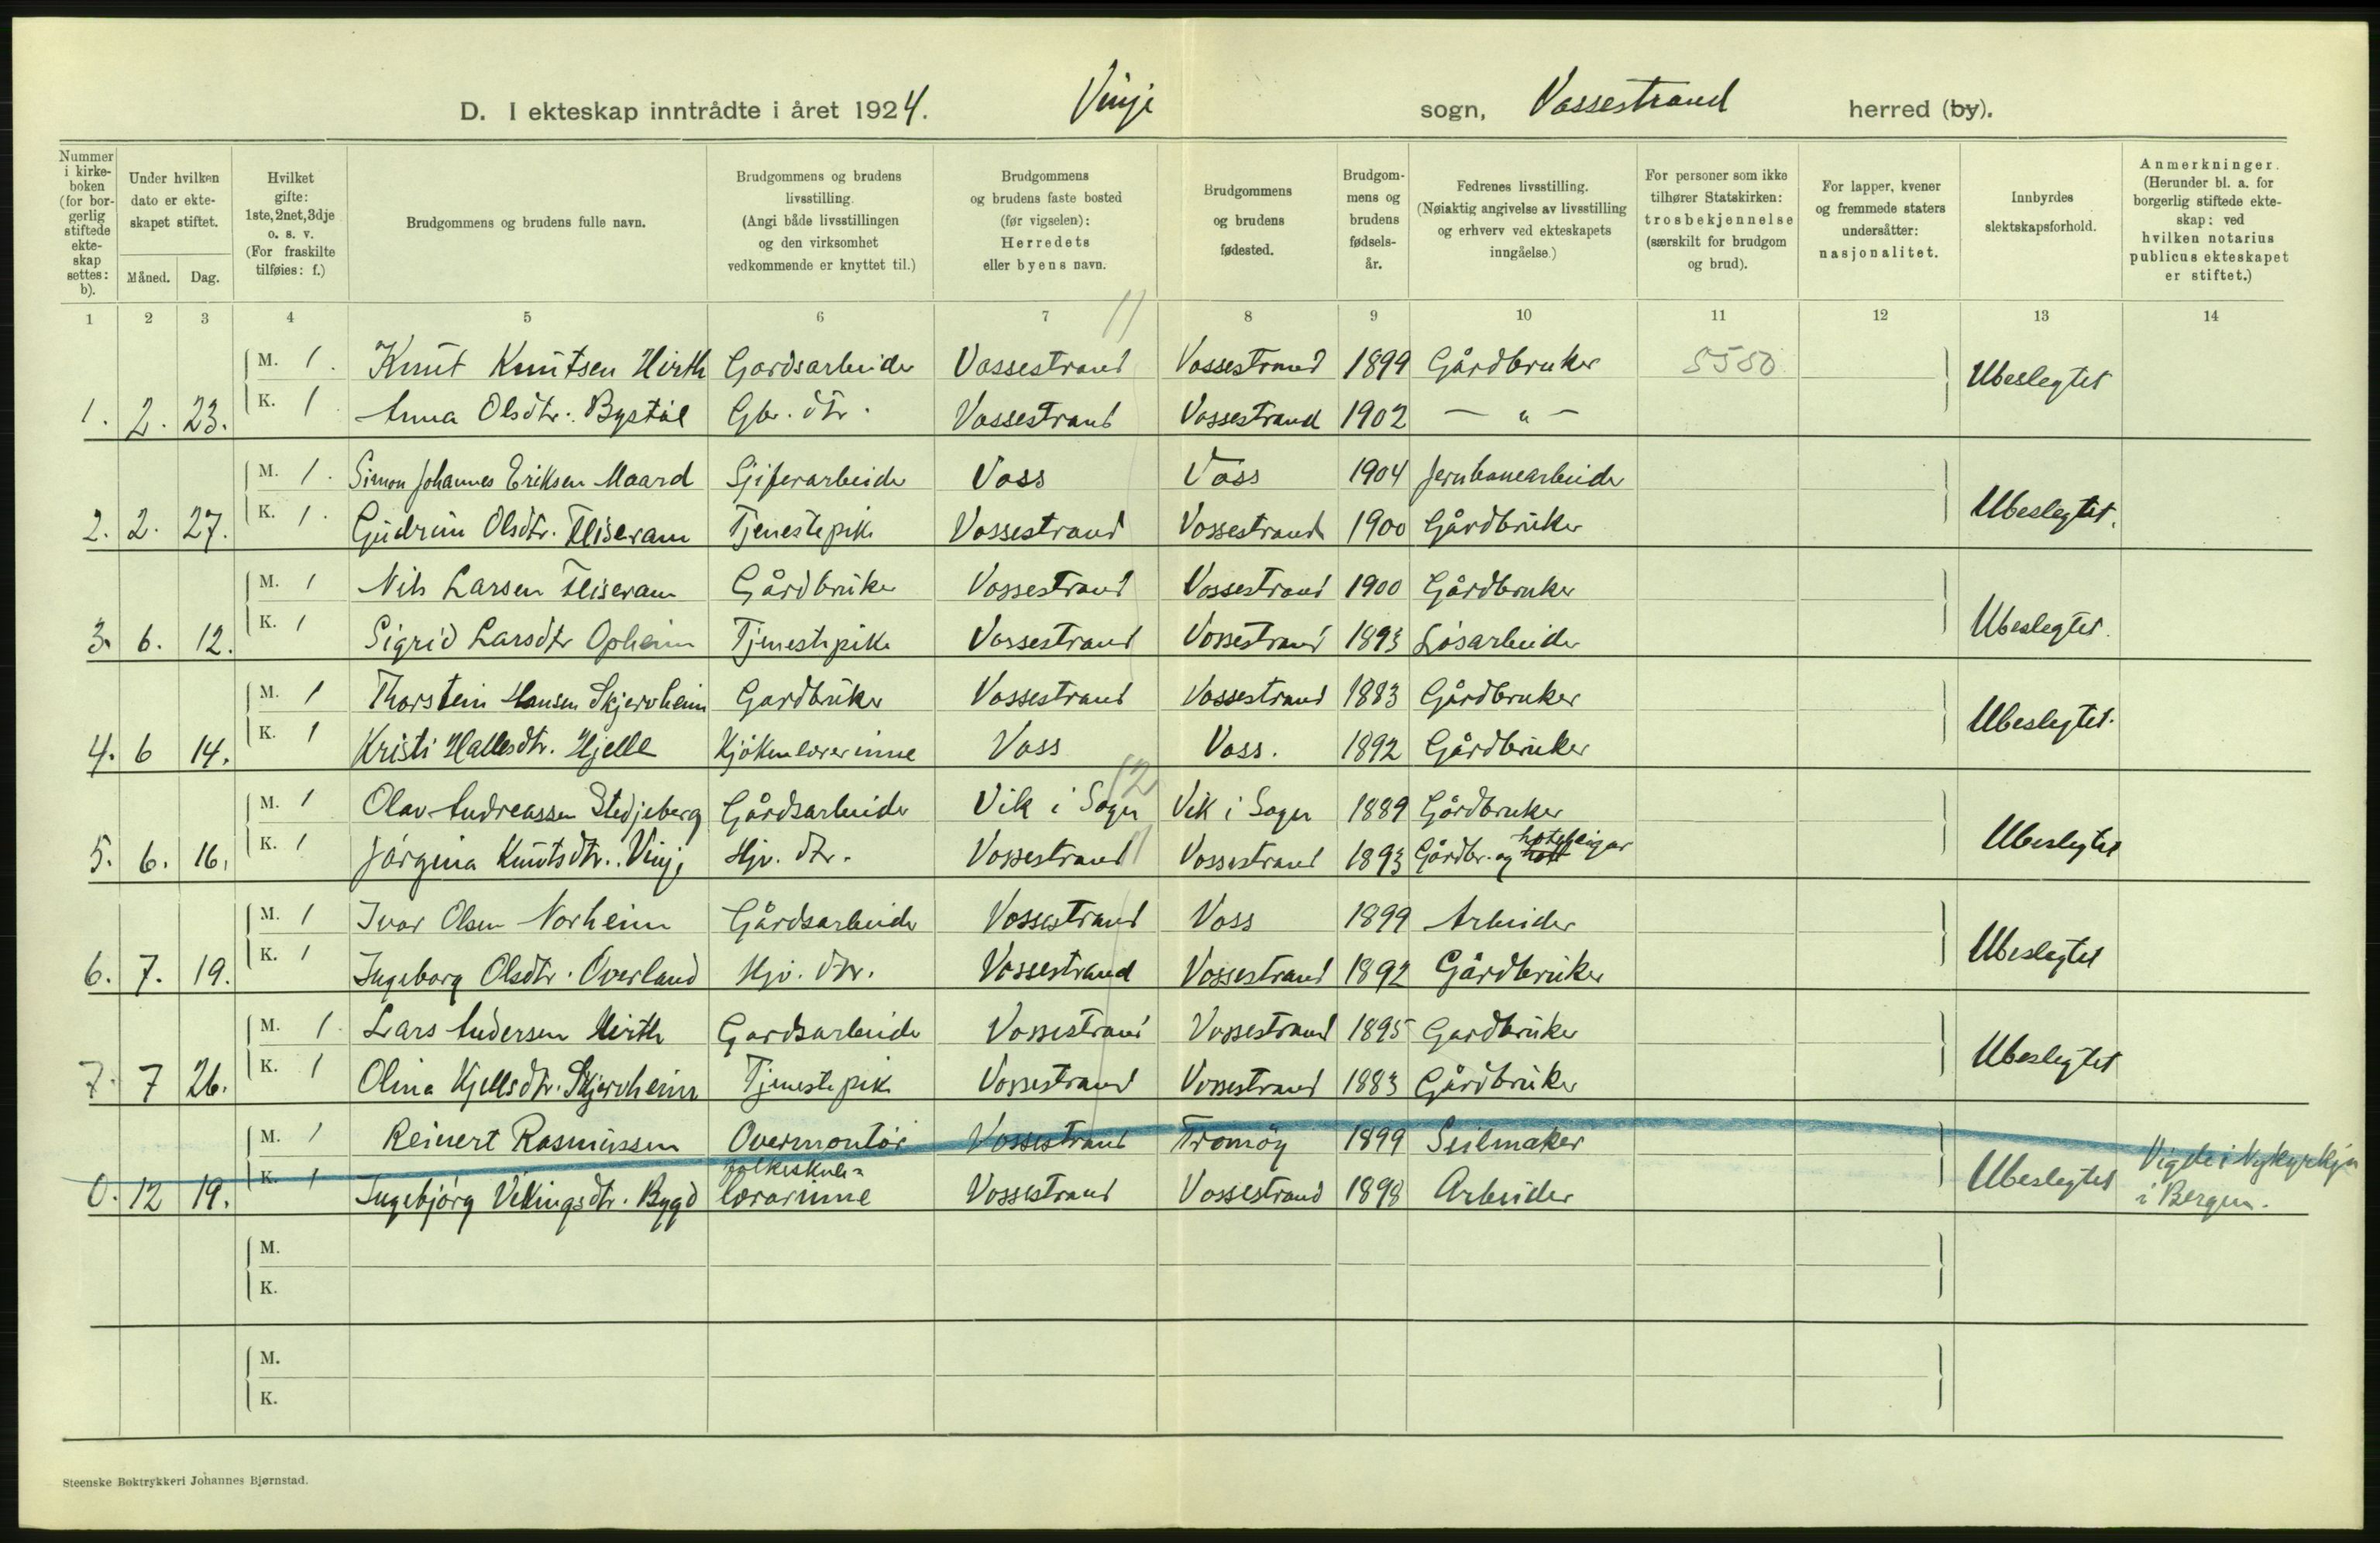 D. I ekteskap inntrådte i året 1924. Vinje sogn, Vossestrand herred (by).
Nummer i kirkeboken (for borgerlig stiftede ekteskap settes: b).
Under hvilken dato er ekteskapet stiftet.
Måned. Dag.
Hvilket gifte: 1ste, 2net, 3dje o. s. v. (For fraskilte tilføies: f.)
Brudgommens og brudens fulle navn.
Brudgommens og brudens livsstilling. (Angi både livsstillingen og den virksomhet vedkommende er knyttet til.)
Brudgommens og brudens faste bosted (før vigselen): Herredets eller byens navn.
Brudgommens og brudens fødested.
Brudgommens og brudens fødselsår.
Fedrenes livsstilling. (Nøiaktig angivelse av livsstilling og erhverv ved ekteskapets inngåelse.)
For personer som ikke tilhører Statskirken: trosbekjennelse (særskilt for brudgom og brud).
For lapper, kvener og fremmede staters undersåtter: nasjonalitet.
Innbyrdes slektskapsforhold.
Anmerkninger. (Herunder bl. a. for borgerlig stiftede ekteskap: ved hvilken notarius publicus ekteskapet er stiftet.)
1 2 3 4 5 6 7 8 9 10 11 12 13 14
11
M. 1. Knut Knutsen Hirth Gardsarbeider Vossestrand Vossestrand 1899 Gårdbruker 5550 Ubeslegtet
1. 2. 23. K. 1. Anna Olsdtr. Bystøl Gbr. dtr. Vossestrand Vossestrand 1902 — " —
M. 1. Simon Johannes Eriksen Maard Skiferarbeider Voss Voss 1904 Jernbanearbeider Ubeslegtet.
2. 2. 27. K. 1. Gudrun Olsdtr. Fliseram Tjenestepike Vossestrand Vossestrand 1900 Gårdbruker
M. 1 Nils Larsen Fliseram Gårdbruker Vossestrand Vossestrand 1900 Gårdbruker Ubeslegtet.
3. 6. 12. K. 1 Sigrid Larsdtr Opheim Tjenestepike Vossestrand Vossestrand 1893 Løsarbeider
M. 1 Thorstein Hansen Skjervheim Gardbruker Vossestrand Vossestrand 1883 Gårdbruker Ubeslegtet.
4. 6 14. K. 1 Kristi Hallesdtr. Hjelle Kjøkenlærerinne Voss Voss. 1892 Gårdbruker
12
M. 1 Olav Andreassen Stedjeberg Gårdsarbeider Vik i Sogn Vik i Sogn 1889 Gårdbruker Ubeslegtet
hotelleigar
5. 6. 16. K. 1 Jørgina Knutsdtr. Vinje Hjv. dtr. Vossestrand 11 Vossestrand 1893 Gårdbr. og hott
M. 1 Ivar Olsen Norheim Gårdsarbeider Vossestrand Voss 1899 Arbeider Ubeslegtet
6. 7. 19. K. 1 Ingeborg Olsdtr. Øverland Hjv. dtr. Vossestrand Vossestrand 1892 Gårdbruker
M. 1. Lars Andersen Hirth Gardsarbeide Vossestrand Vossestrand 1895 Gardbruker Ubeslegtet
7. 7 26. K. 1 Olina Kjellsdtr. Skjervheim Tjenestepike Vossestrand Vossestrand 1883 Gårdbruker
M. 1 Reinert Rasmussen Overmontør Vossestrand Tromøy 1899 Seilmaker Ubeslegtet Vigde i Nykyrkja
folkeskule-
0. 12 19. K. 1 Ingebjørg Vikingsdtr. Bygd lærarinne Vossestrand Vossestrand 1898 Arbeider i Bergen.
M.
K.
M.
K.
Steenske Boktrykkeri Johannes Bjørnstad.